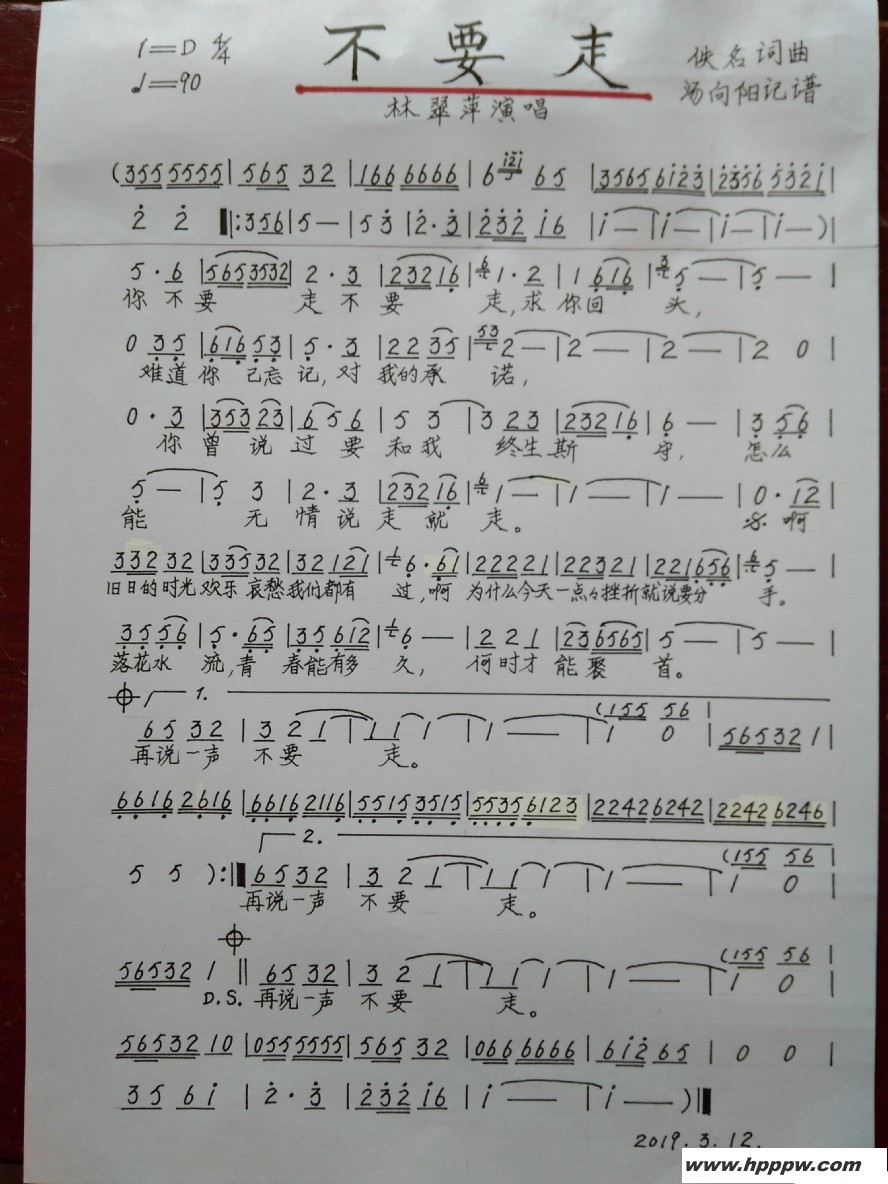 1=D 2/4
不要走
佚名词曲
♩=90
汤向阳记谱
林翠萍演唱
(355 5555 | 565 32 | 166 6666 | 6 i2i 65 | 3565 6123 | 2356 5321 |
2 2 ‖: 356 | 5 — | 5 3 | 2·3 | 232 16 | i — | i — | i — | i — ) |
5·6 | 565 3532 | 2·3 | 232 16 | 6 1·2 | 1 616 | 3 5 — | 5 — |
你不要 走不要 走,求你回 头,
0 35 | 616 53 | 5·3 | 22 35 | 53 2 — | 2 — | 2 — | 2 0 |
难道你 己忘记,对 我的承 诺,
0·3 | 353 23 | 6 5 6 | 5 3 | 3 23 | 232 16 | 6 — | 3 56 |
你曾说过要和我 终生斯 守, 怎么
5 — | 5 3 | 2·3 | 232 16 | 6 1 — | 1 — | 1 — | 0·12 |
能 无情说走就 走。 啊
332 32 | 335 32 | 32 121 | 1 6·61 | 2222 1 | 2232 1 | 221 655 | 6 5 — |
旧日的时光欢乐 哀愁我们都有 过,啊 为什么今天一点々挫折就说要分 手。
35 56 | 5·65 | 35 612 | 1 6 — | 22 1 | 23 6565 | 5 — | 5 — |
落花水 流,青 春能有多 久, 何时才能聚 首。
1.
(155 56 |
65 32 | 3 2 1 | 1 1 1 | 1 — | 1 0 | 56532 1 |
再说一声 不要 走。
6616 2616 | 6616 2116 | 5515 3515 | 5535 6123 | 2242 6242 | 2242 6246 |
2.
(155 56 |
5 5 ) :‖ 65 32 | 3 2 1 | 1 1 1 | 1 — | 1 0 |
再说一声 不要 走。
(155 56 |
56532 1 ‖ 65 32 | 3 2 1 | 1 1 1 | 1 — | 1 0 |
D.S. 再说一声 不要 走。
56532 10 | 055 5555 | 565 32 | 066 6666 | 612 65 | 0 0 |
35 6i | 2·3 | 232 16 | i — | i — ) ‖
2019.3.12.
www.hpppw.com